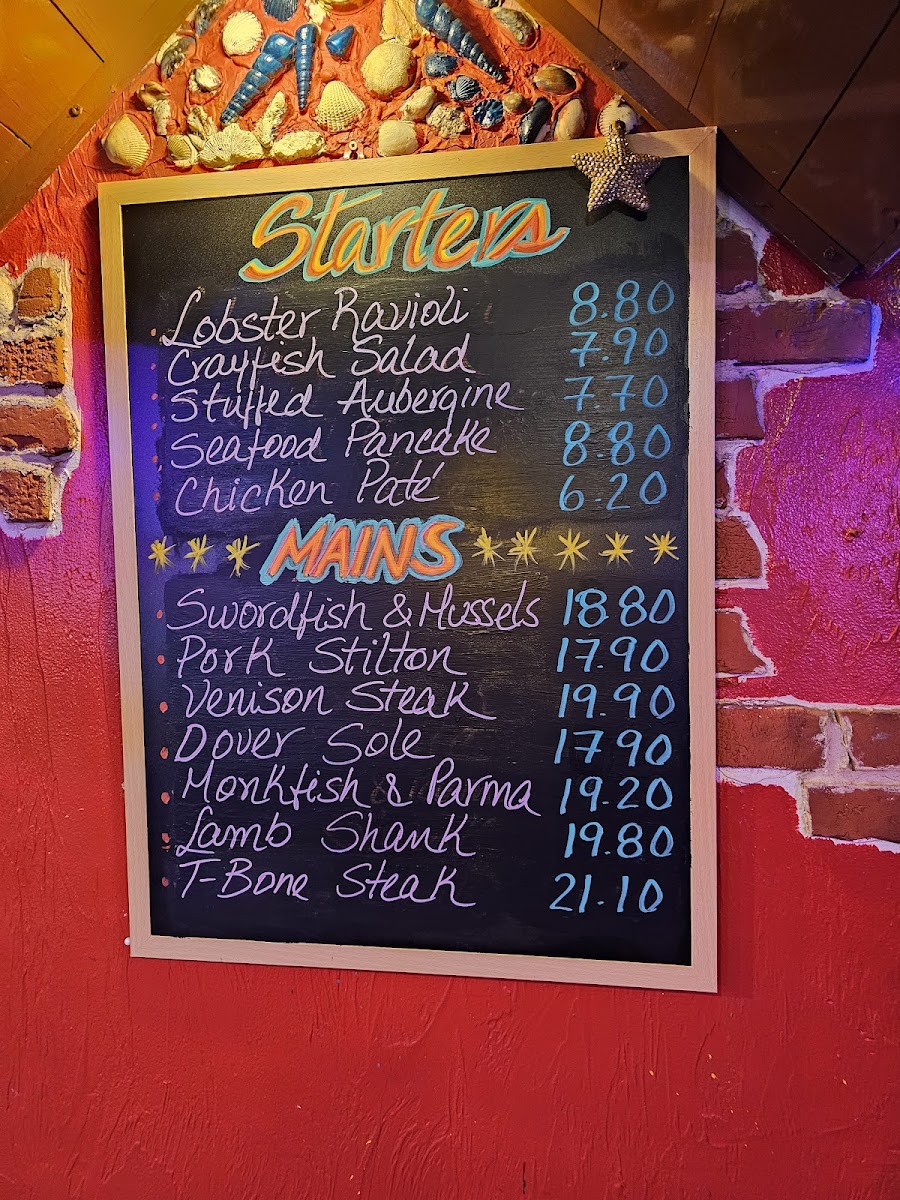 Starters
Lobster Ravioli 8.80
Crayfish Salad 7.90
Stuffed Aubergine 7.70
Seafood Pancake 8.80
Chicken Paté 6.20
MAINS
Swordfish & Mussels 18.80
Pork Stilton 17.90
Venison Steak 19.90
Dover Sole 17.90
Monkfish & Parma 19.20
Lamb Shank 19.80
T-Bone Steak 21.10